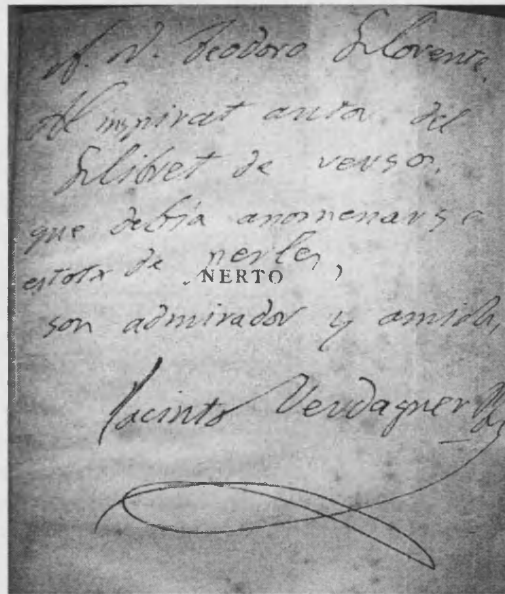 A. D. Teodoro Llorente,
Al inspirat autor del
Llibret de versos,
que debía anomenarse
estotx de perles,
NERTO
son admirador y amich,
Jacinto Verdaguer